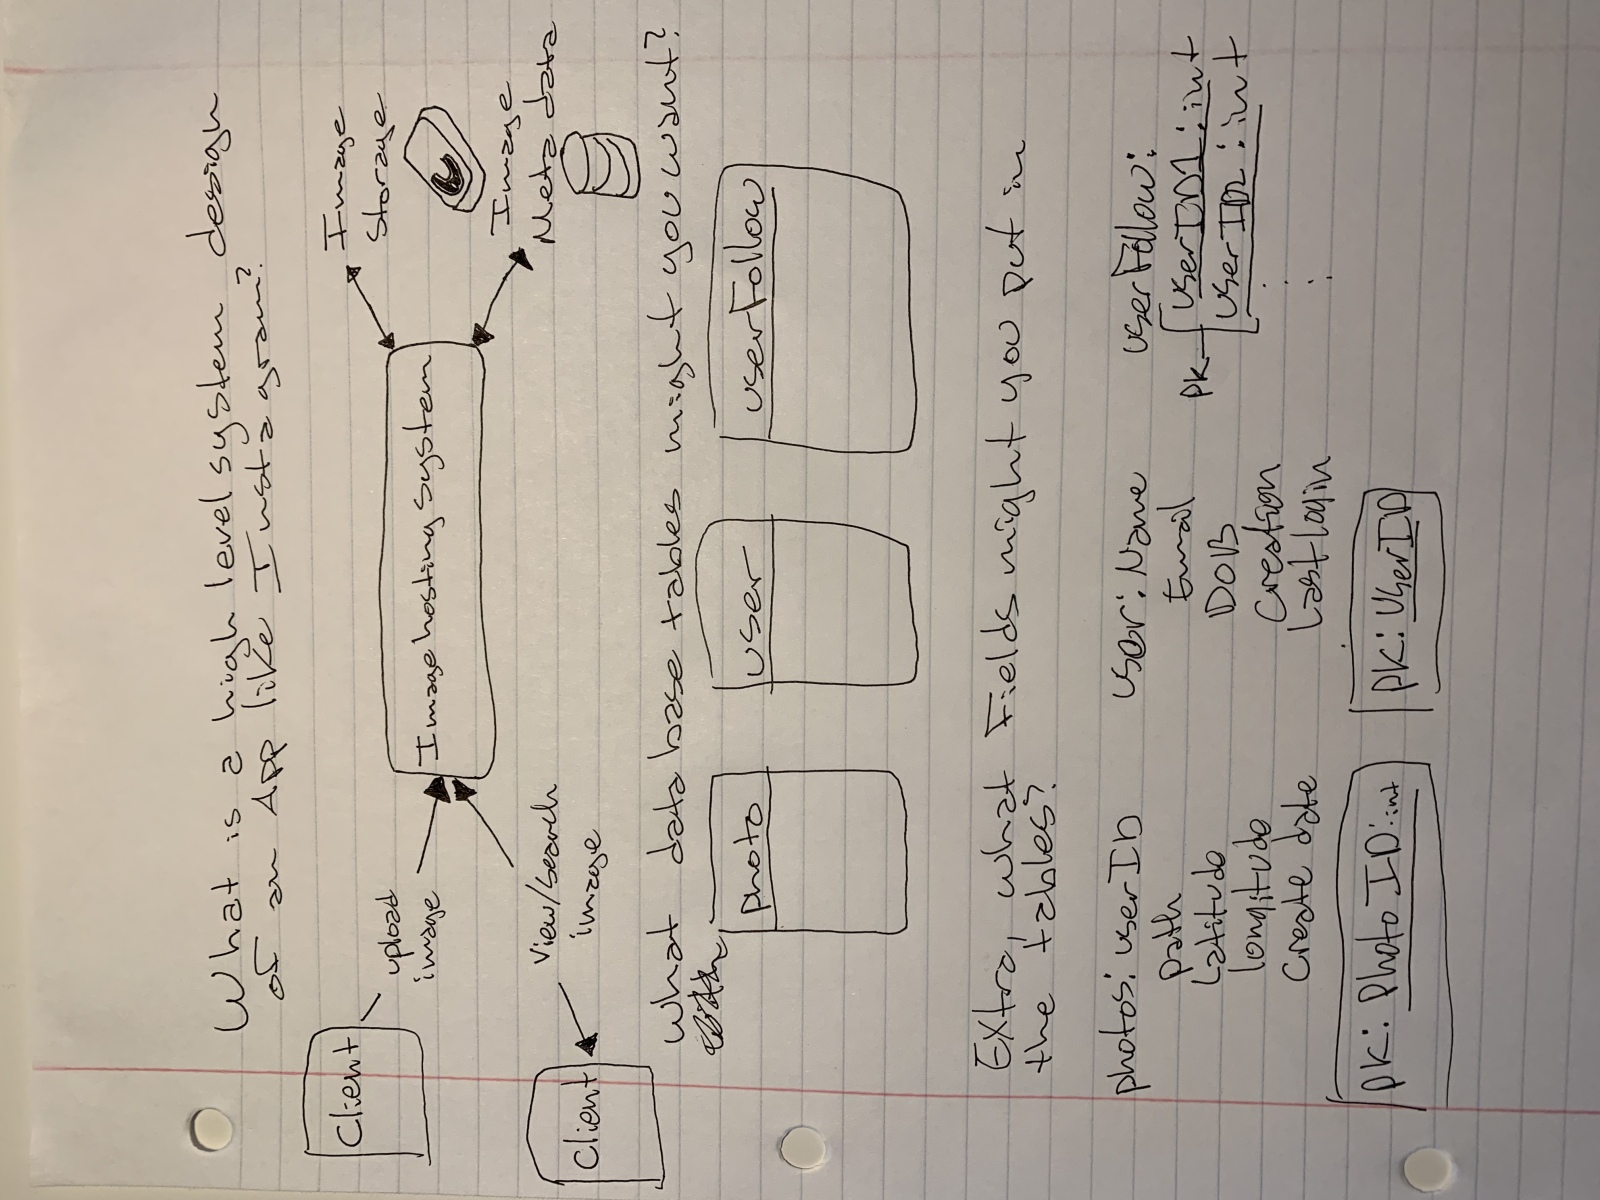 What is a high level system design
of an App like Instagram?
Client
upload
image
Image hosting system
Image
Storage
Image
Meta data
View/search
image
Client
What data base tables might you want?
photo
user
userFollow
Extra, what Fields might you put in
the tables?
photos: userID
path
Latitude
longitude
Create date
PK: Photo ID:int
User: Name
Email
DOB
Creation
Last login
PK: UserID
userFollow:
PK
UserID1: int
UserID2: int